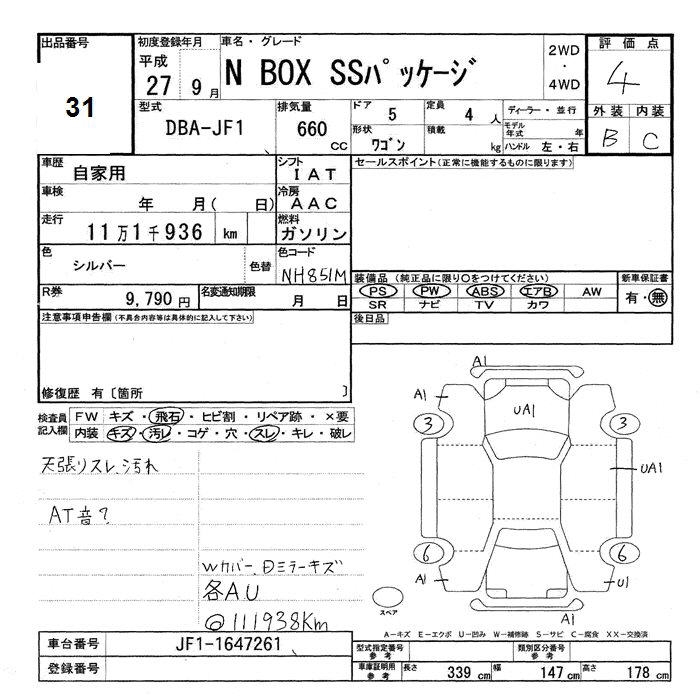 出品番号
31
初度登録年月
平成
27 9 月
車名・グレード
N BOX SSパッケージ
2WD
・
4WD
評価点
4
外装 内装
B C
型式
DBA-JF1
排気量
660 CC
ドア 5
定員 4 人
ディーラー・並行
モデル年式 年
形状 ワゴン
積載 kg
ハンドル 左・右
車歴
自家用
シフト
IAT
車検
年 月( 日)
冷房
AAC
走行
11万1千936 km
燃料
ガソリン
色
シルバー
色替
色コード
NH851M
R券
9,790 円
名変通知期限
月 日
セールスポイント(正常に機能するものに限ります)
装備品 (純正品に限り○をつけてください)
新車保証書
PS PW ABS エアB AW
有・無
SR ナビ TV カワ
後日品
注意事項申告欄(不具合内容等は具体的に記入して下さい)
修復歴 有〔箇所 〕
検査員
記入欄
FW キズ・飛石・ヒビ割・リペア跡・×要
内装 キズ・汚レ・コゲ・穴・スレ・キレ・破レ
天張りスレ、汚れ
AT音?
Wカバー、Dミラーキズ
各AU
@111938Km
A1
A1
UA1
3 3
UA1
6 6
A1
U1
A1
スペア
A-キズ E-エクボ U-凹み W-補修跡 S-サビ C-腐食 XX-交換済
車台番号
JF1-1647261
登録番号
型式指定番号
参考
類別区分番号
参考
車庫証明用
参考
長さ 339 cm
幅 147 cm
高さ 178 cm